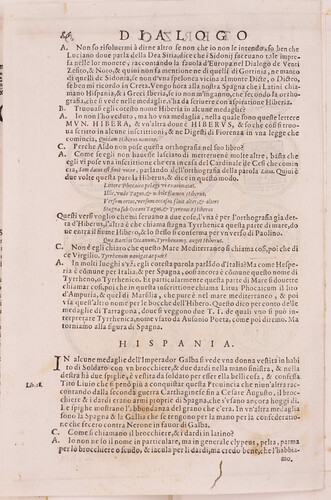 DIALOGO
A. Non so risolvermi à dirne altro se non che io non le intendo, so ben che
Luciano doue parla della Dea Siria, dice che i Sidonij faceuano tale impre
sa nelle lor monete, raccontando la fauola d'Europa: nel Dialogo de Venti
Zefiro, & Noto, & quini non fa mentione ne di quelli di Gortinia, ne manco
di quelli de Sidonia, se non d'vna spelonca vicina al monte Dicte, o Dictæo,
se ben mi ricordo in Creta. Vengo hora alla nostra Spagna che i Latini chia
mano Hispania, & i Greci Iberia, se io non m'inganno, & che secondo la orto
grafia, che si vede nelle medaglie, s'ha da scriuere con aspiratione Hiberia.
B. Trouasi egli cotesto nome Hiberia in alcune medaglie?
A. Io non l'ho veduto, ma ho vna medaglia, nella quale sono queste lettere
MVN. HIBERA, & vn'altra doue è HIBERVS, & so che cosi si tro
ua scritto in alcune inscrittioni, & ne Digesti di Fiorenza in vna legge che
comincia, Quidam Hiberus nomine.
C. Perche Aldo non pose questa orthografia nel suo libro?
A. Come scegli non hauesse lasciato di metteruene molte altre, basta che
egli vi pose vna inscrittione che era in casa del Cardinale de Cesi che comin
cia, parlando dell'ortografia della parola Quini è
due volte questa parte la Hibera, & dice in questo modo.
Littore Phocaico pelagi vi exanimatus.
Illic, vnde Tagus, & nobile flumen Hiberus.
Stagna sub Oceani Tagus, & Tyrrhenica Hiberus
Questi versi voglio che mi seruano a due cose, l'vna è per l'orthografia gia det
ta d'Hiberus, l'altra è che chiama stagna Tyrrhenica questa parte di mare, do
ue entra il fiume Hibero, & lo stesso si conferma per vn verso di Paolino.
Qua Baetis Oceanum, Tyrrhenumq; auget Hiberus.
C. Non è egli chiaro che questo Mare Mediterraneo si chiama cosi, poi che di
ce Virgilio. Tyrrhenum nauigat æquor?
A. In molti luoghi vsa egli cotesta parola parlādo d'Italia? Ma come Hespe-
ria è cōmune per Italia, & per Spagna, così ancora è cōmune questo nome di
Tyrrheno, o Tyrrhenico. Et particularmente questa parte di Mare si douette
chiamar cosi, poi che in questa inscrittione chiama Litus Phocaicum il lito
d'Ampuria, & quel di Marsilia, che pure è nel mare mediterraneo, & poi
vsa quest'altro nome per le bocche dell'Hibero. Questo dico per conto delle
medaglie di Tarragona, doue si veggono due T. T. de quali vno si può in-
terpretare Tyrrhenica, nome vsato da Ausonio Poeta, come poi diremo. Ma
torniamo alla figura di Spagna.
HISPANIA.
IN alcune medaglie dell'Imperador Galba si vede vna donna vestita in habi
to di Soldato con vn brocchiere, & due dardi nella mano sinistra, & nella
destra ha due spighe, è vestita da soldato per esser ella bellicosa, & confessa
Lib. 28. Tito Liuio che si penò più a conquistar questa Prouincia che niun'altra rac-
contando dalla seconda guerra Carthaginese fin a Cesare Augusto, il broc-
chiere & i dardi erano armi proprie di Spagna, che s'vsano ancora hoggi dì.
Le spighe mostrano l'abbondanza del grano che c'era. In vn'altra medaglia
sono la Spagna & la Gallia che se tengono per la mano per la confederatio-
ne che fecero contra Nerone in fauor di Galba.
C. Come si chiamano il brocchiere, & i dardi in latino?
A. Io non ne so il nome in particulare, ma in generale clypeus, pelta, parma
per lo brocchiero o scudo, & iacula per li dardi, ma credo bene, che l'habbia-
mo,